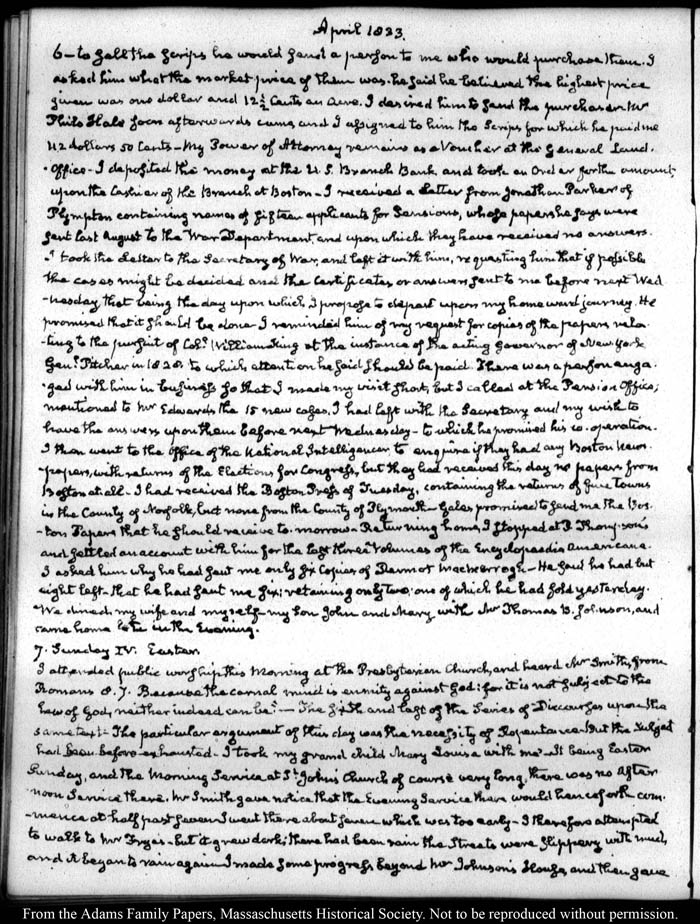 April 1833.
6 — to sell the scrips he would send a person to me who would purchase them. I
asked him what the market price of them was. he said he believed the highest price
given was one dollar and 12½ Cents an Acre. I desired him to send the purchaser. Mr
Philo Hale soon afterwards came, and I assigned to him the Scrips for which he paid me
112 dollars 50 Cents — My Power of Attorney remains as a Voucher at the General Land.
Office — I deposited the money at the U.S. Branch Bank and took an Order for the amount
upon the Cashier of the Branch at Boston — I received a Letter from Jonathan Parker of
Plympton containing names of fifteen applicants for Pensions, whose papers he says were
sent last August to the War Department and upon which they have received no answers.
I took the Letter to the Secretary of War, and left it with him, requesting him that if possible
the cases might be decided and the Certificates or answers sent to me before next Wed
-nesday, that being the day upon which I propose to depart upon my homeward journey. He
promised that it should be done — I reminded him of my request for copies of the papers rela-
-ting to the pursuit of Coll. William King at the instance of the acting Governor of New York
Genl. Pitcher in 1828. to which attention he said should be paid. There was a person enga
-ged with him in business so that I made my visit short, but I called at the Pension Office;
mentioned to Mr Edwards the 15 new cases, I had left with the Secretary and my wish to
have the answers upon them before next Wednesday — to which he promised his co-operation.
I then went to the Office of the National Intelligencer, to enquire if they had any Boston News-
-papers, with returns of the Elections for Congress, but they had received this day no papers from
Boston at all — I had received the Boston Press of Tuesday, containing the returns of five Towns
in the County of Norfolk, but none from the County of Plymouth — Gales promised to send me the Bos-
-ton Papers that he should receive to-morrow — Returning home, I stopped at P. Thompson's
and settled an account with him for the last three Volumes of the Encyclopaedia Americana.
I asked him why he had sent me only six Copies of Dermot MacMorrogh — He said he had but
eight left — that he had sent me six; retaining only two: one of which he had sold yesterday.
We dined, my wife and myself my Son John and Mary with Mr Thomas B. Johnson, and
came home late in the Evening.
7. Sunday IV. Easter.
I attended public worship this Morning at the Presbyterian Church, and heard Mr Smith, from
Romans 8. 7. Because the carnal mind is enmity against God: for it is not subject to the
Law of God, neither indeed can be." — The sixth and last of the Series of Discourses upon the
same text — The particular argument of this day was the necessity of Repentance — But the subject
had been before exhausted — I took my grand child Mary Louisa with me — It being Easter
Sunday, and the Morning Service at St. John's Church of course very long, there was no After
noon Service there. Mr Smith gave notice that the Evening Service there would henceforth com-
-mence at half past seven I went there about seven which was too early — I therefore attempted
to walk to Mr Frye's — but it grew dark; there had been rain the Streets were slippery with mud,
and it began to rain again I made some progress beyond Mr Johnson's House, and then gave
From the Adams Family Papers, Massachusetts Historical Society. Not to be reproduced without permission.